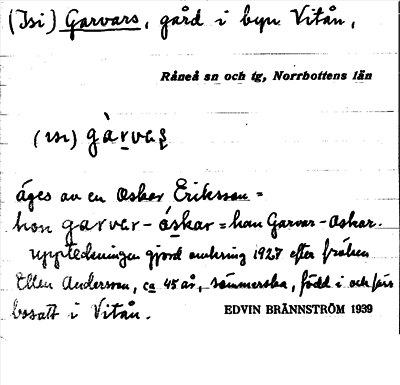 (Isi) Garvars, gård i byn Vitån,
Råneå sn och tg, Norrbottens län
(ısı) gàrvaʂ
äges av en Oskar Eriksson =
hon garvar-óskar = han Garvar-Oskar.
uppteckningen gjord omkring 1927 efter fröken
Ellen Andersson, ca 45 år, sömmerska, född i och
bosatt i Vitån.
EDVIN BRÄNNSTRÖM 1939